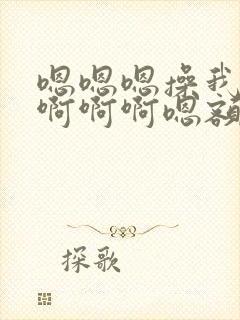 嗯嗯嗯操我
啊啊啊嗯额
探歌